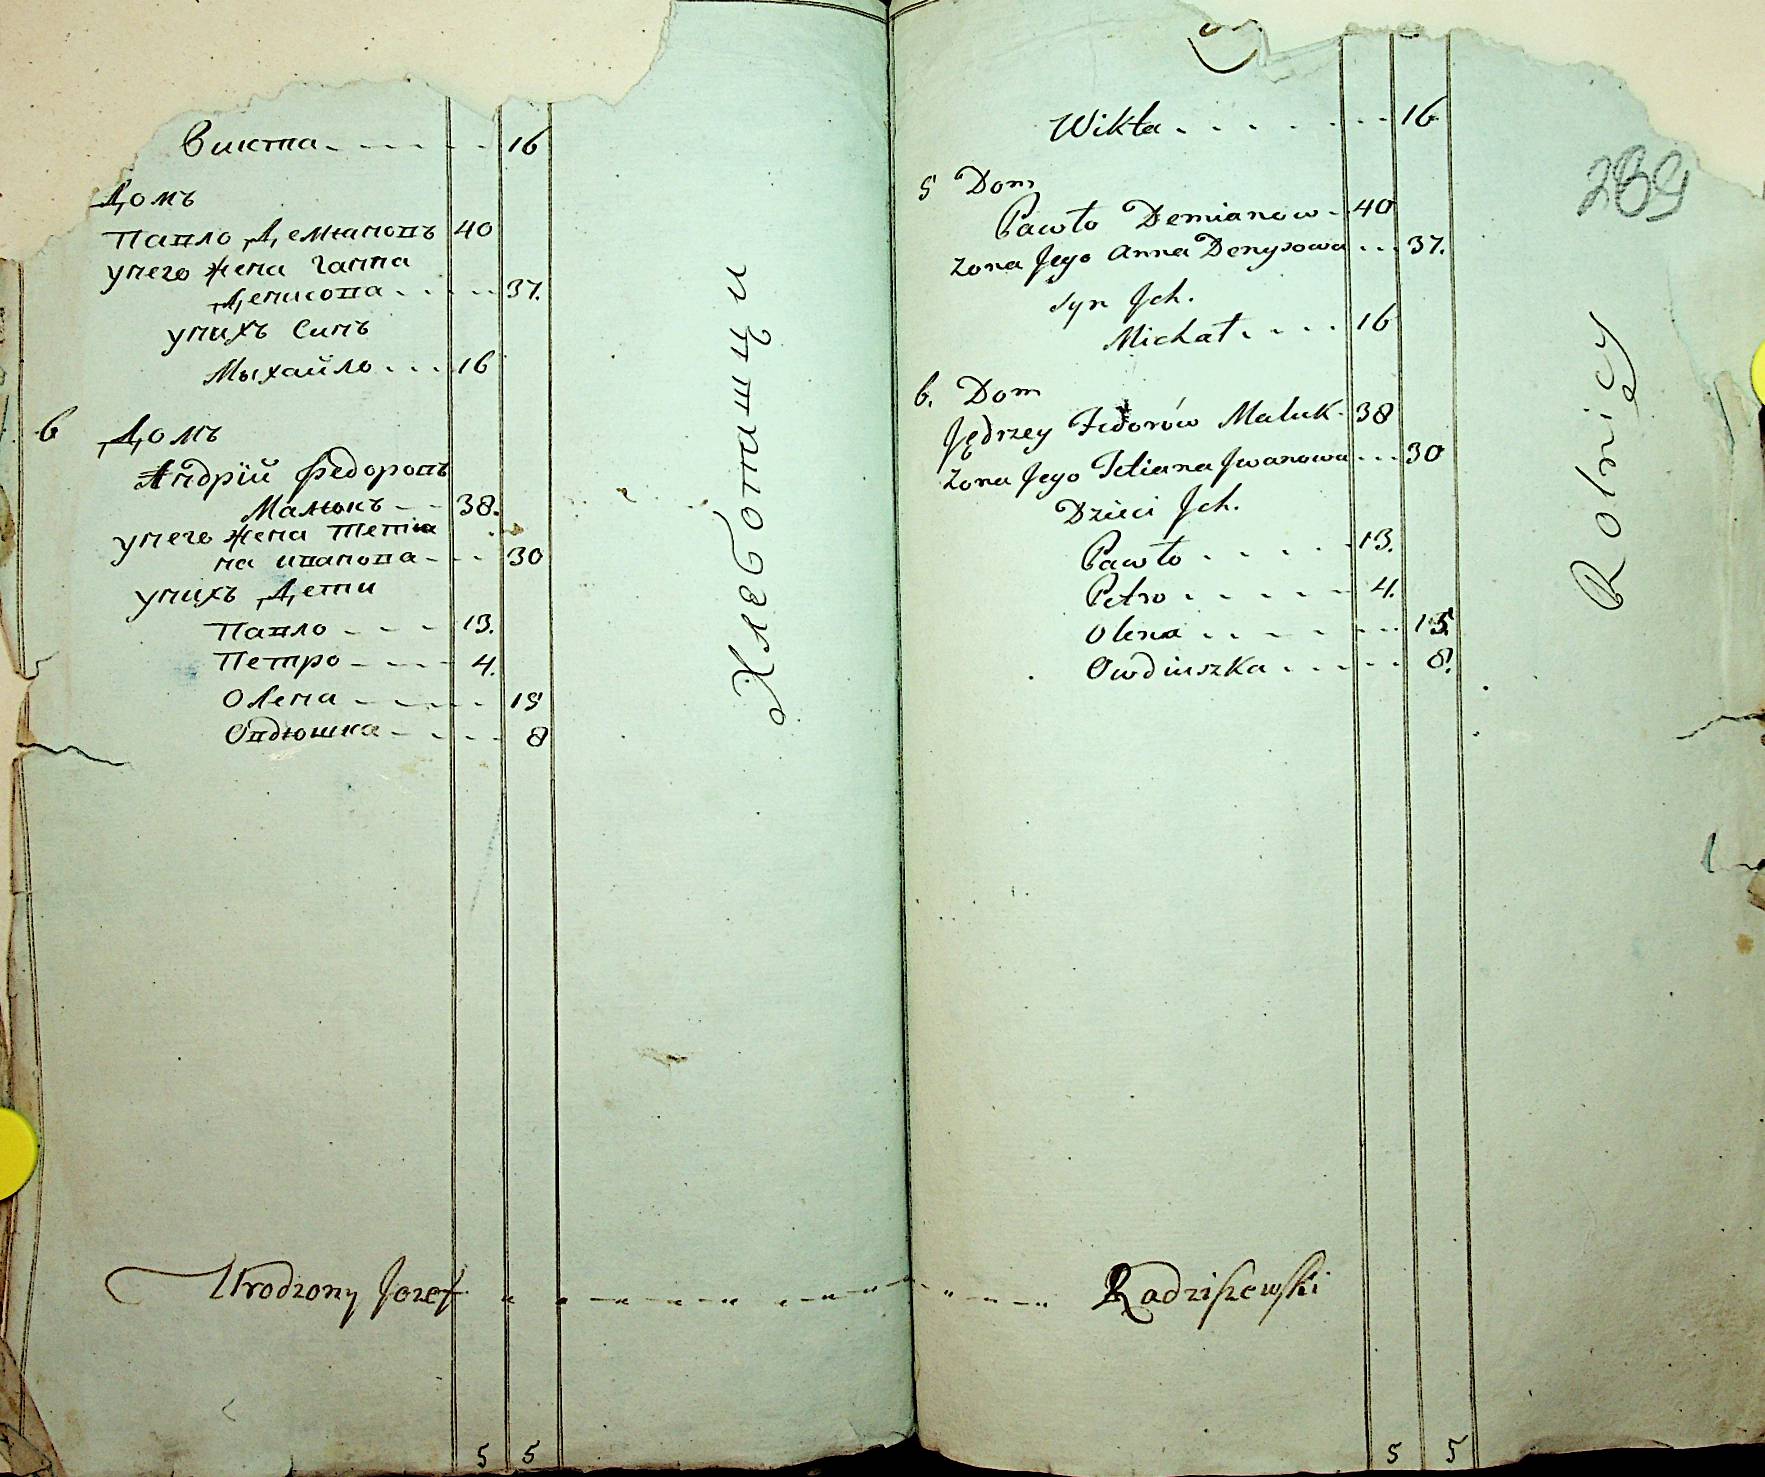 Викта - - - - - - 16
Домъ
Павло Демяновъ 40
унего жена Ганна
Денисова - - - - - 37.
унихъ Синъ
Мыхайло - - - 16
6 Домъ
Андрій Федоровъ
Малюкъ - - 38.
унего жена Тетія
на иванова - - - 30
унихъ Дети
Павло - - - 13.
Петро - - - - 4.
Олена - - - - - 15
Овдюшка - - - - - 8
Хлебопашци
Urodzony Jozef
5 5
Wikta - - - - - - - 16
239
5 Dom
Pawło Demianow - 40
zona Jego Anna Denysowa - - - 37.
syn Jch.
Michał - - - - 16
6. Dom
Jędrzey Fedorów Maluk - 38
zona Jego Tetiana Jwanowa - - - 30
Dzieci Jch.
Pawło - - - - - 13.
Petro - - - - - 4.
Olena - - - - - - - 15.
Owdiuszka - - - - - 8.
Rolnicy
Radziszewski
5 5